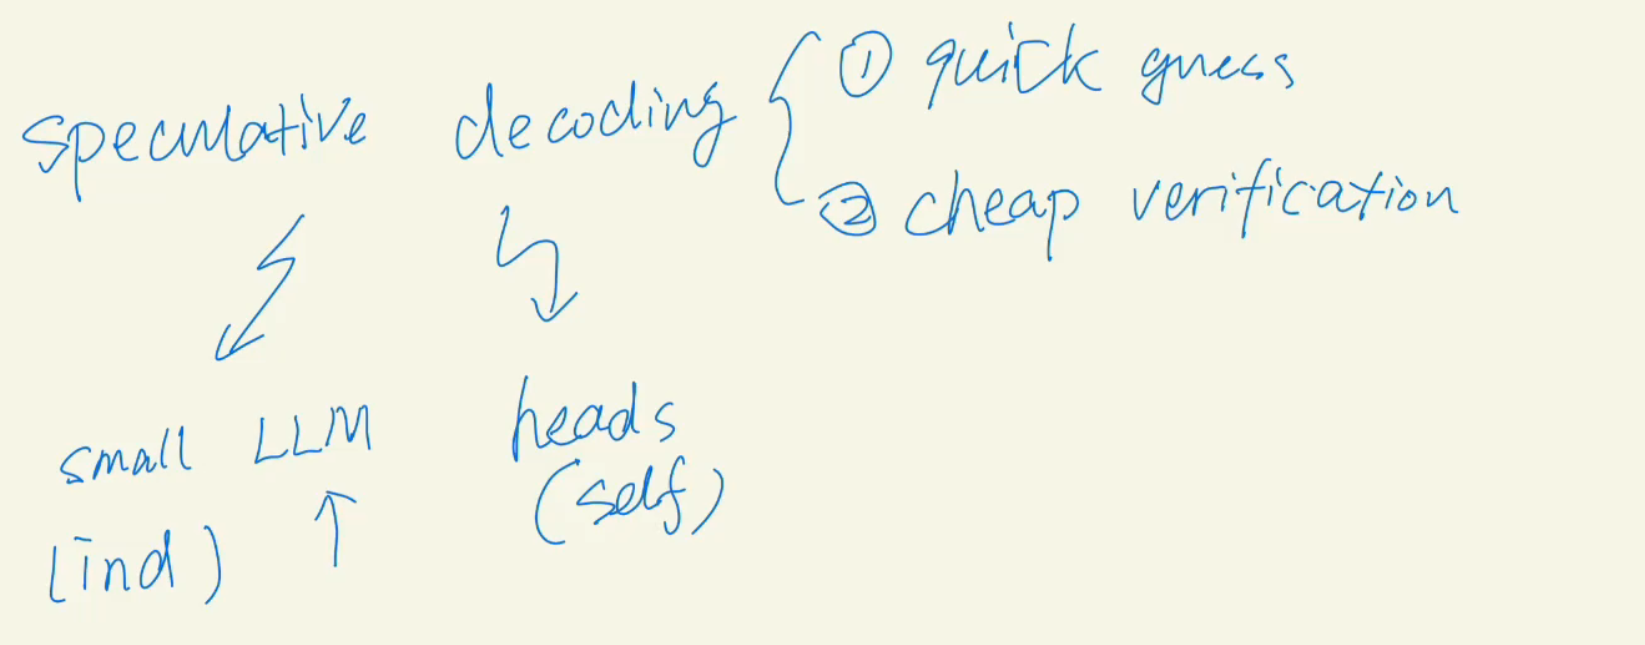 speculative decoding
① quick guess
② cheap verification
small LLM
(ind)
heads
(self)